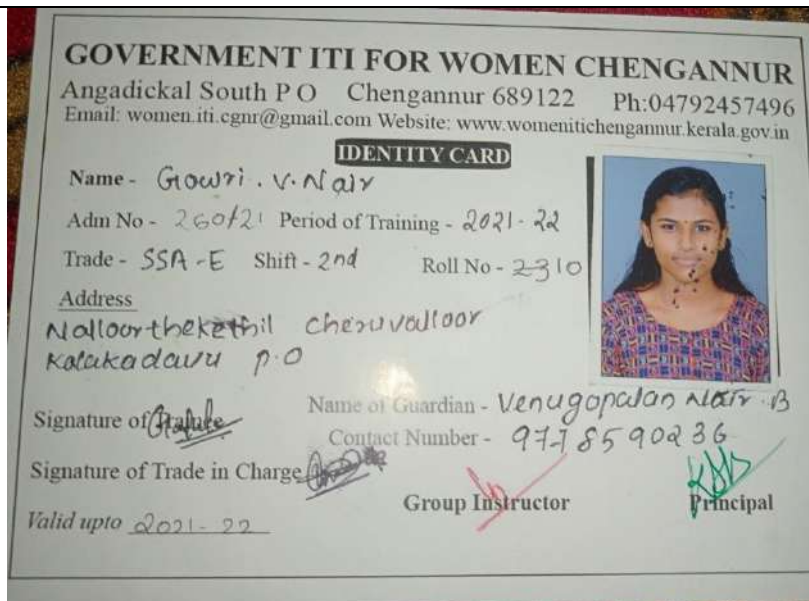 GOVERNMENT ITI FOR WOMEN CHENGANNUR
Angadickal South P O Chengannur 689122 Ph:04792457496
Email: women.iti.cgnr@gmail.com Website: www.womenitichengannur.kerala.gov.in
IDENTITY CARD
Name - Gowri . V . Nair
Adm No - 260/21 Period of Training - 2021-22
Trade - SSA -E Shift - 2nd Roll No - 2310
Address
Nalloorthekethil Cheruvalloor
Kolakadavu P.O
Name of Guardian - Venugopalan Nair . B
Signature of
Contact Number - 9778590236
Signature of Trade in Charge
Group Instructor Principal
Valid upto 2021-22